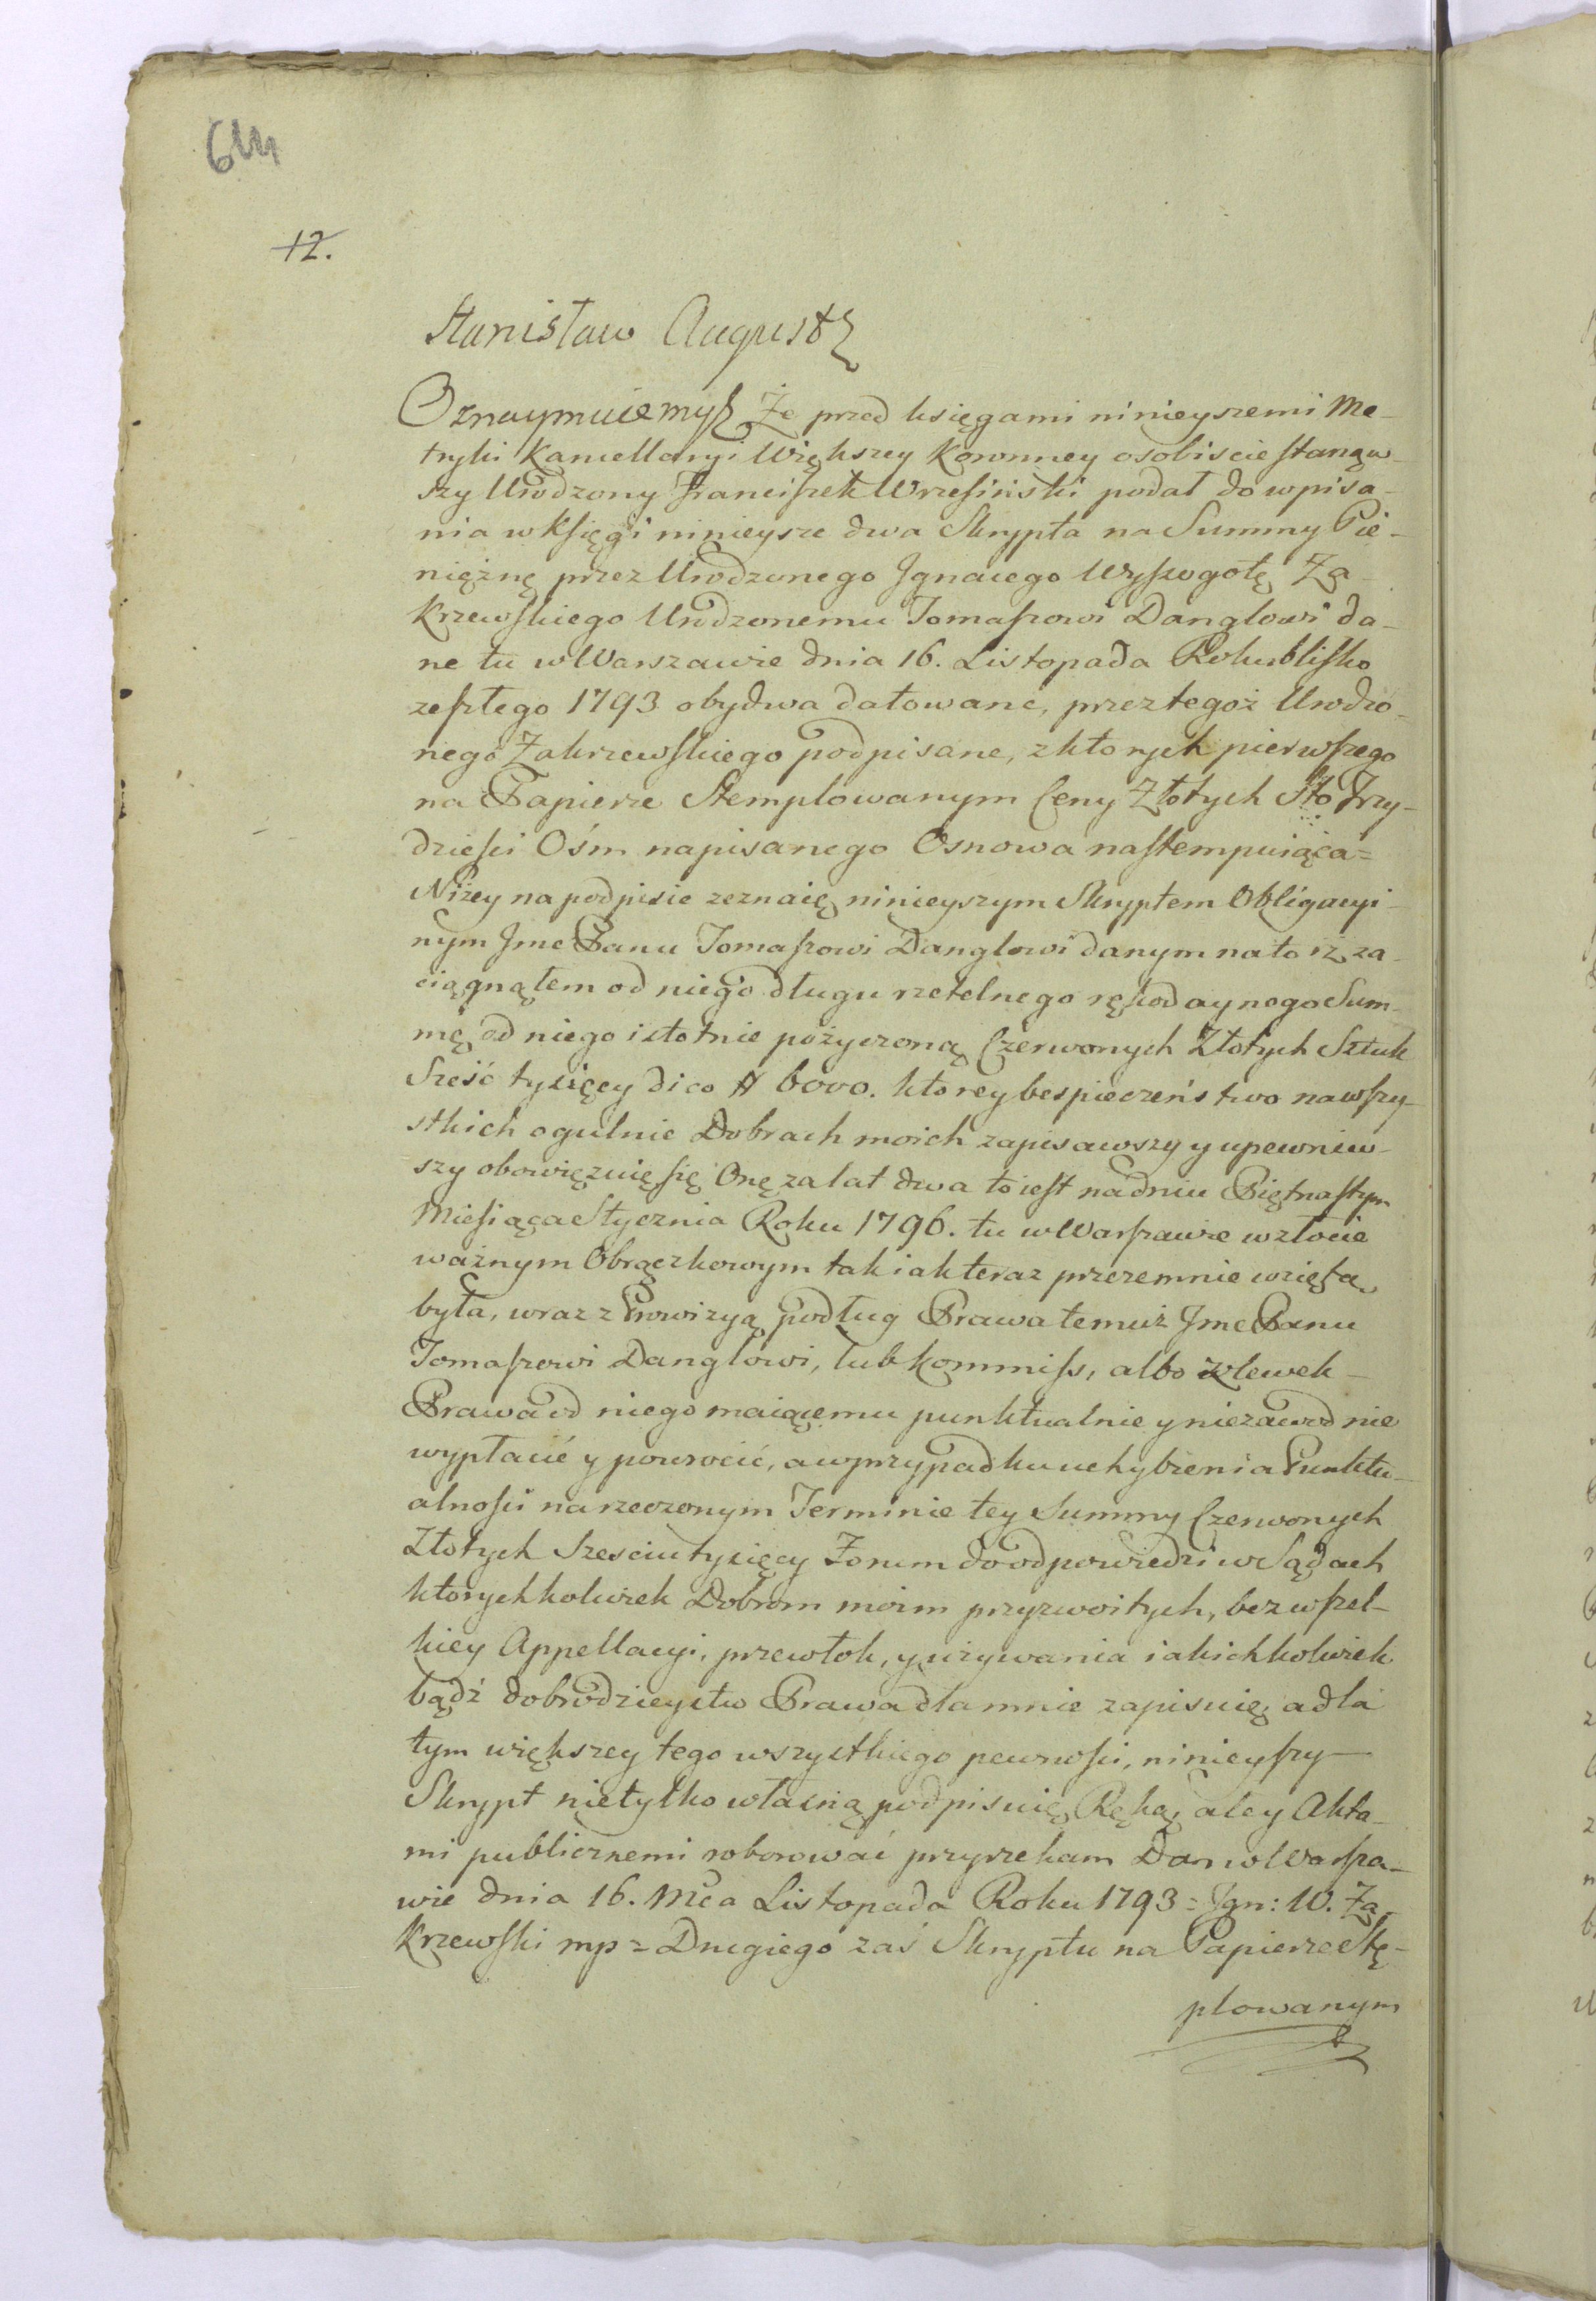 644
12.
Stanisław August
Oznaymuiemy Że przed księgami ninieyszemi Me-
tryki Kancellaryi Większey Koronney osobiscie stanąw-
szy Urodzony Franciszek Wrzesiński podał do wpisa-
nia w Księgi ninieysze dwa Skrypta na Summy Pie-
niężnę przez Urodzonego Jgnacego Wyszogotę Za-
krzewskiego Urodzonemu Tomaszowi Danglowi da-
ne tu w Warszawie dnia 16. Listopada Roku blisko
zeszłego 1793 obydwa datowane, przez tegoż Urodzo-
nego Zakrzewskiego podpisane, z ktorych pierwszego
na Papierze Stemplowanym Ceny Złotych Sto Trzy-
dzieści Ośm napisanego Osnowa nastempuiąca =
Niżey na podpisie zeznaię ninieyszym Skryptem Obligacyi-
nym Jmc Panu Tomaszowi Danglowi danym na to iż za-
ciągnąłem od niego długu rzetelnego ręcodaynego Sum-
mę od niego istotnie pożyczoną Czerwonych Złotych Sztuk
Sześć tysięcy dico # 6000. ktorey bespieczeństwo na wszy-
stkich ogulnie Dobrach moich zapisawszy y upewniw-
szy obowięzuię się Onę za lat dwa to iest na dniu Piętnastym
Miesiąca Stycznia Roku 1796. tu w Warszawie w złocie
ważnym Obrączkowym tak iak teraz przezemnie wzięta
była, wraz z Prowizyą podług Prawa temuż Jmc Panu
Tomaszowi Danglowi, lub kommiss, albo zlewek-
Prawa od niego maiącemu punktualnie y niezawodnie
wypłacić y powrocić, a w przypadku uchybienia Punktu-
alności na rzeczonym Terminie tey Summy Czerwonych
Złotych Szesciu tysięcy Forum do odpowiedzi w Sądach
ktorychkolwiek Dobrom moim przyzwoitych, bez wszel-
kiey Appellacyi, przewłok, y używania iakichkolwiek
bądź dobrodzieystw Prawa dla mnie zapisuię, a dla
tym większey tego wszystkiego pewności, ninieyszy
Skrypt nietylko własną podpisuię Ręką, ale y Akta-
mi publicznemi roborować przyrzekam Dan w Warsza-
wie dnia 16. Mca Listopada Roku 1793 = Jgn: W. Za-
krzewski mp = Drugiego zaś Skryptu na Papierze Stę-
plowanym